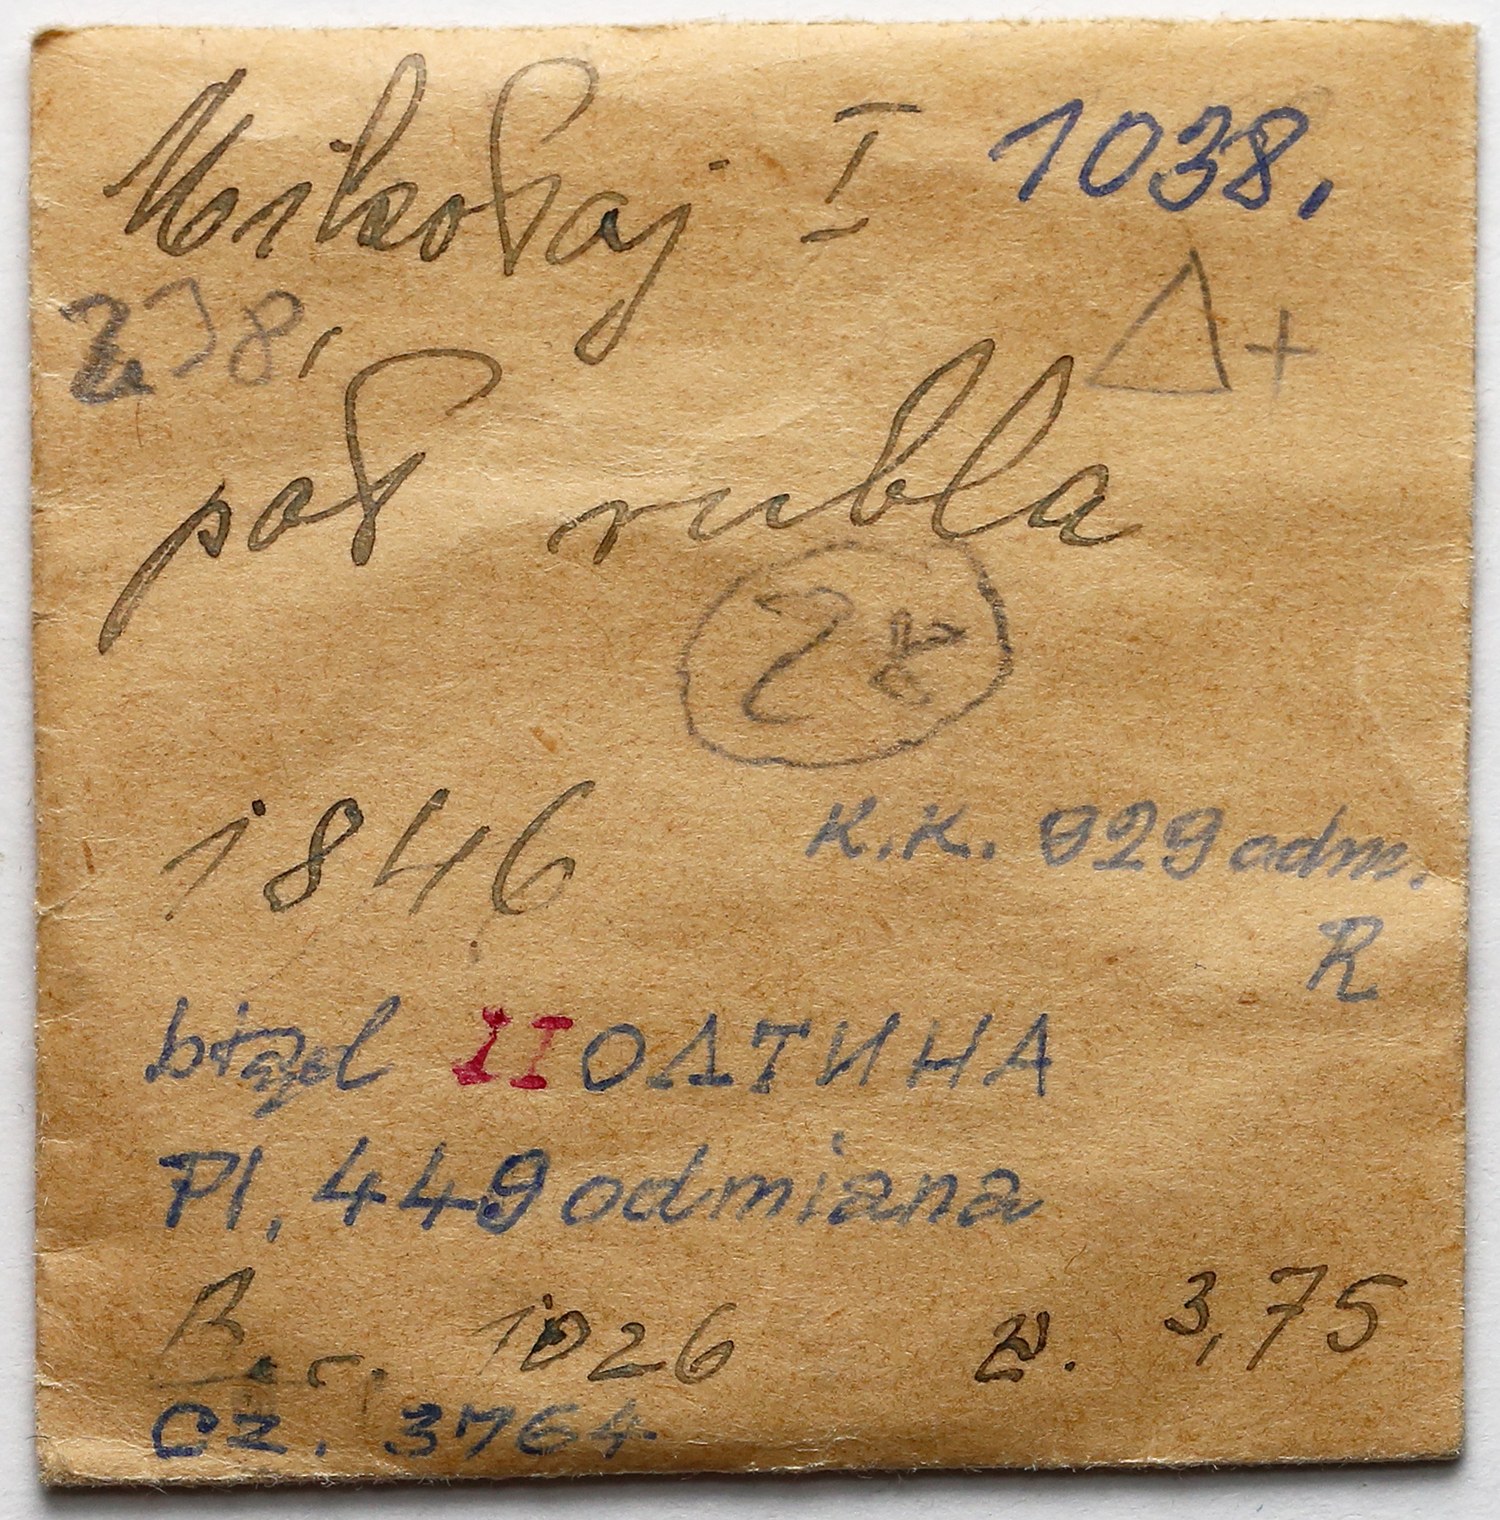 Mikołaj I 1038.
238,
Δ+
pół rubla
1846
K.K. 929 odm.
R
błąd IIОЛТИНА
Pl. 449 odmiana
1026 zł. 3,75
Cz. 3764